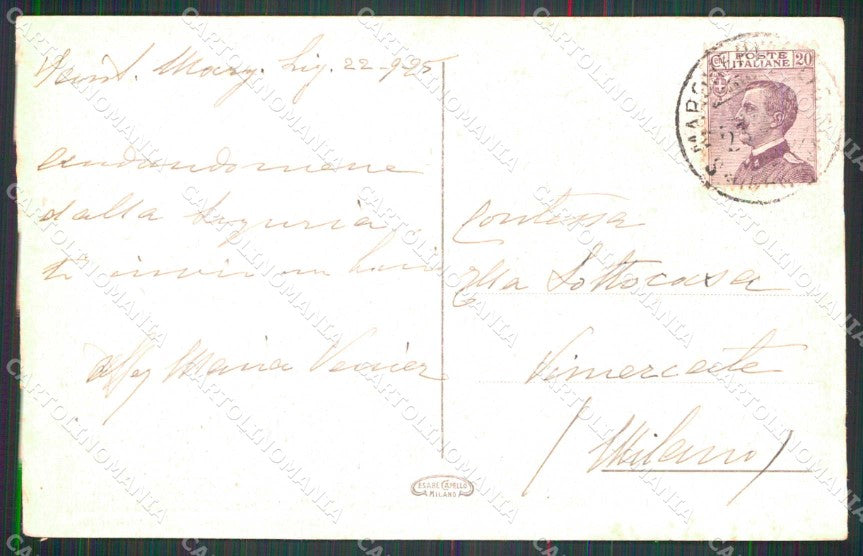 Sant. Marg. Lig. 22-925
andandomene
dalla Liguria
ti invio un
aff Maria Venier
Contessa
Ella Sottocasa
Vimercate
(Milano)
POSTE
ITALIANE
20
S. MARG
CESARE CAPELLO
MILANO
CARTOLINOMANIA